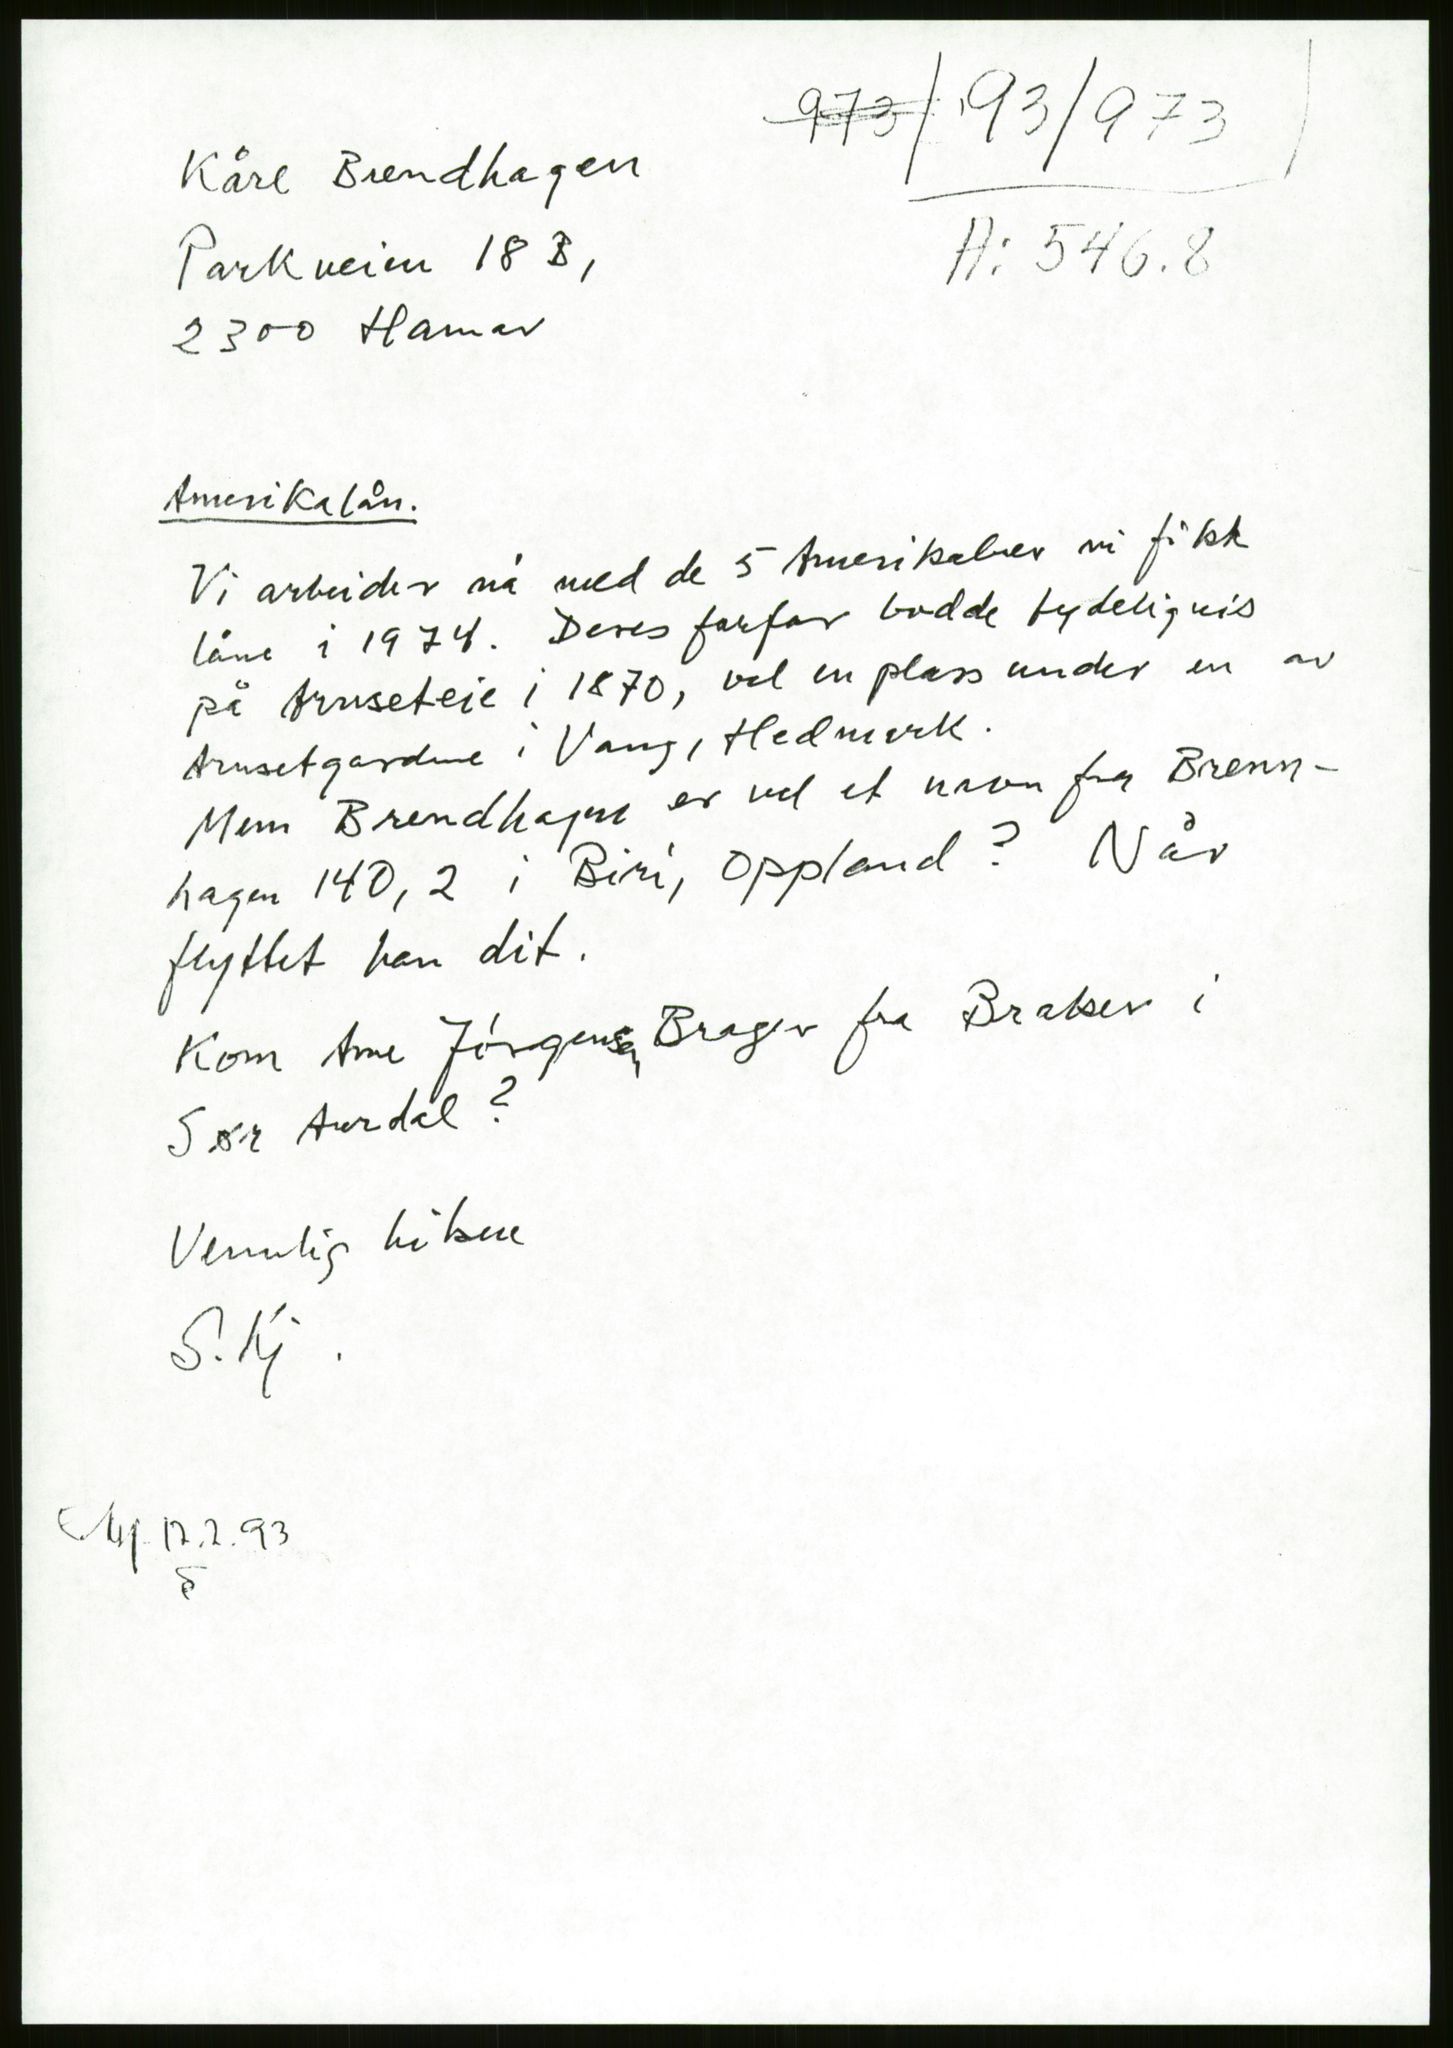 973/93/973
A: 546.8
Kåre Brendhagen
Parkveien 18 B,
2300 Hamar
Amerikalån.
Vi arbeider nå med de 5 Amerikabrev vi fikk
låne i 1974. Deres farfar bodde tydeligvis
på Arnseteie i 1870, vel en plass under en av
Arnsetgardene i Vang, Hedmark.
Men Brendhagen er vel et navn fra Brenn-
hagen 140, 2 i Biri, Oppland? Når
flyttet han dit.
Kom Arne Jörgensen Brager fra Braker i
Sør Aurdal?
Vennlig hilsen
S. Kj.
17.2.93